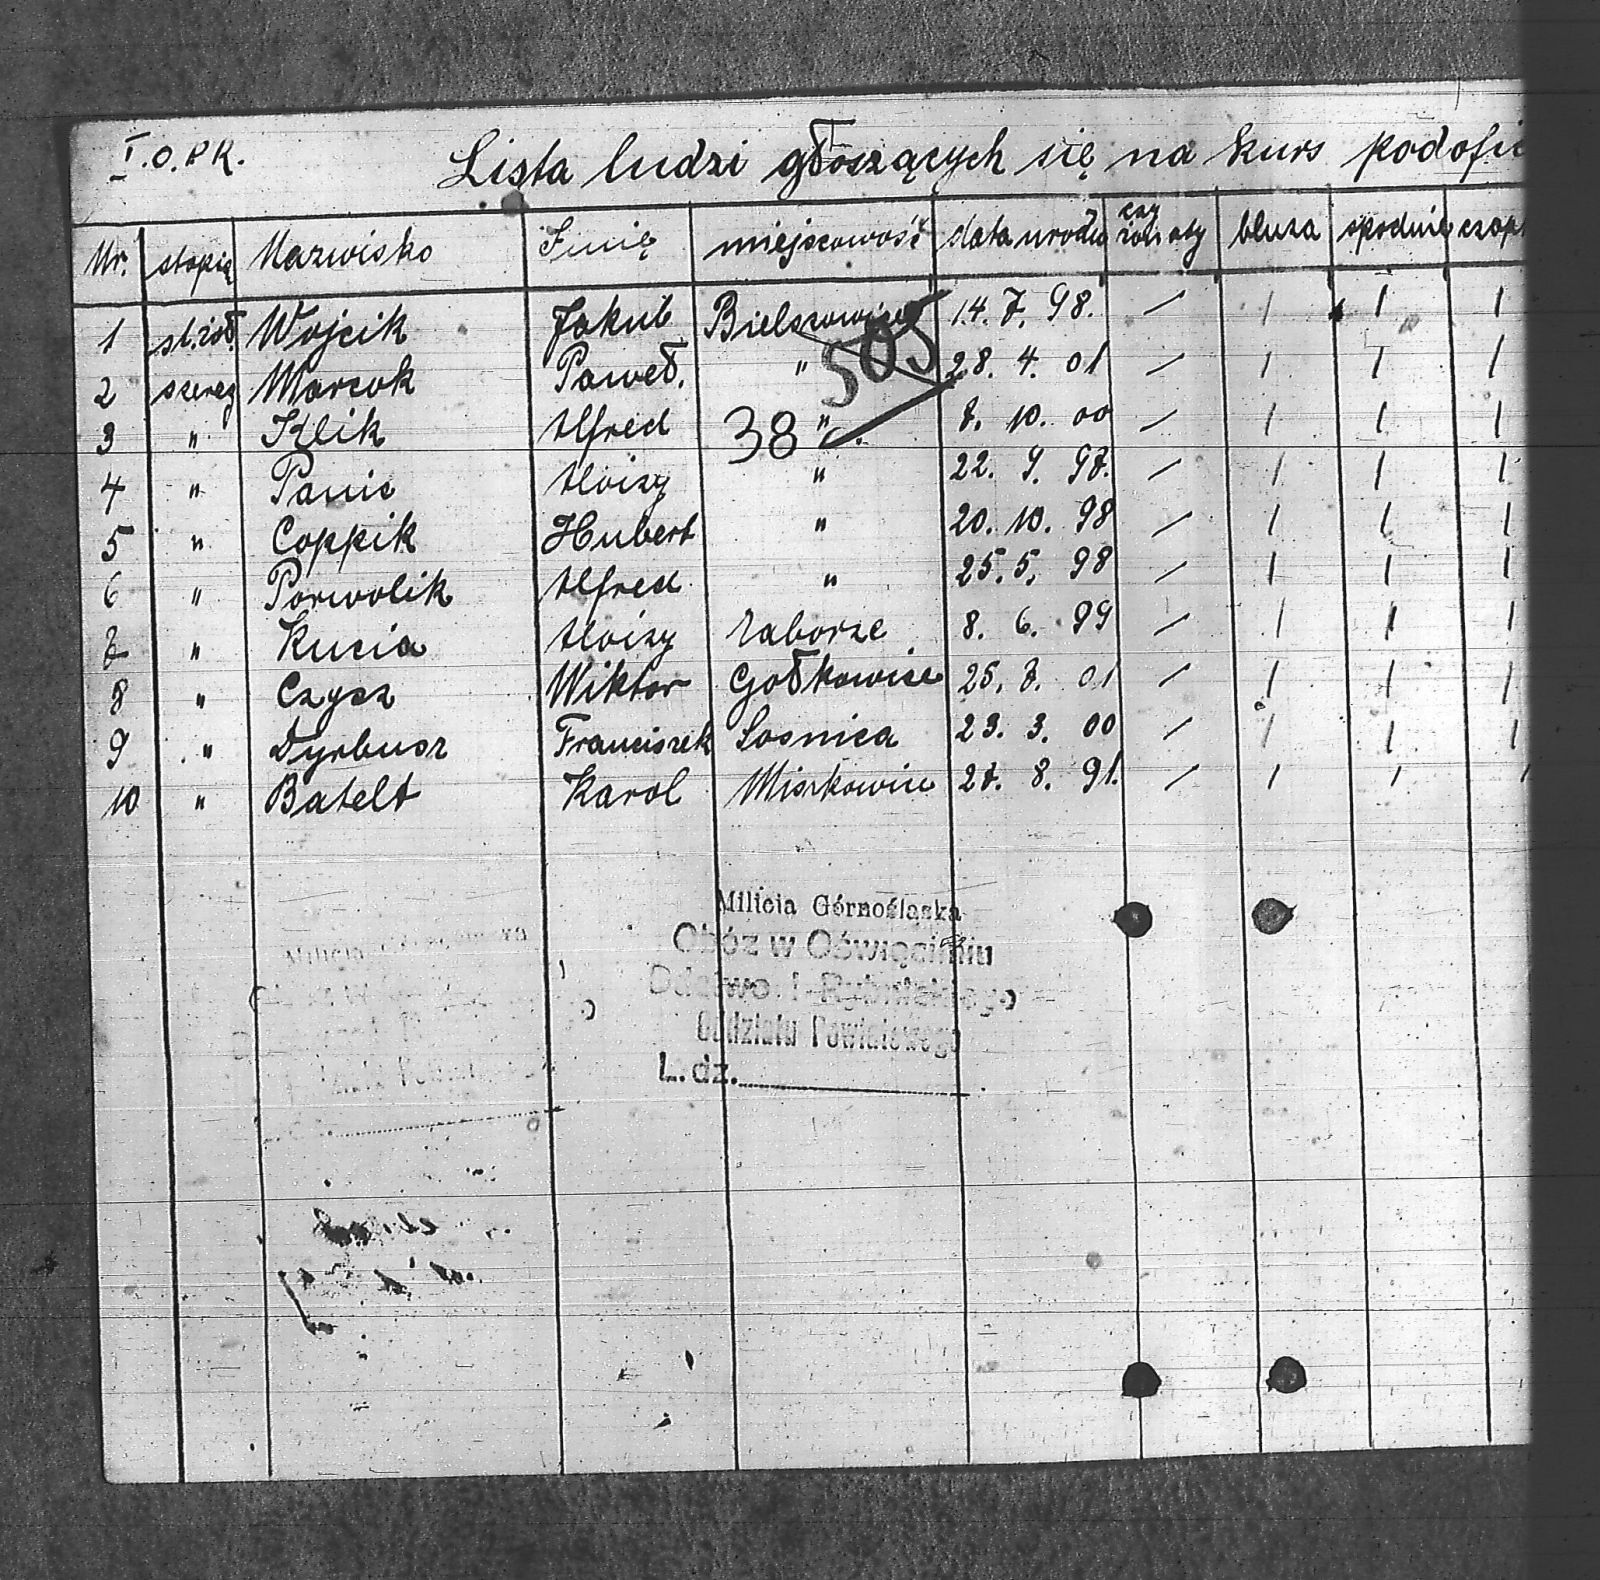 I.O.P.R.
Lista ludzi głoszących się na kurs podofic
Nr. stopię Nazwisko Imię miejscowość data urodz czy żonaty bluza spodnie czapk
1 st.żoł. Wojcik Jakub Bielszowice 14. 7. 98. / / / /
2 szereg Marcok Paweł. " 28. 4. 01 / / / /
3 " Klik Alfred " 7. 10. 00 / / / /
4 " Panic Aloizy " 22. 9. 97. / / / /
5 " Coppik Hubert " 20. 10. 98 / / / /
6 " Porwolik Alfred " 25. 5. 98 / / / /
7 " Kucia Aloizy Zaborze 8. 6. 99 / / / /
8 " Czysz Wiktor Gołkowice 25. 7. 01 / / / /
9 " Dyrbusz Franciszek Sosnica 23. 3. 00 / / / /
10 " Batelt Karol Miszkowice 27. 8. 91. / / / /
505
38
Milicia Górnośląska
Obóz w Oświęcimiu
Ddztwo. I-Rybnickiego
Oddziału Powiatowego
L.dz.